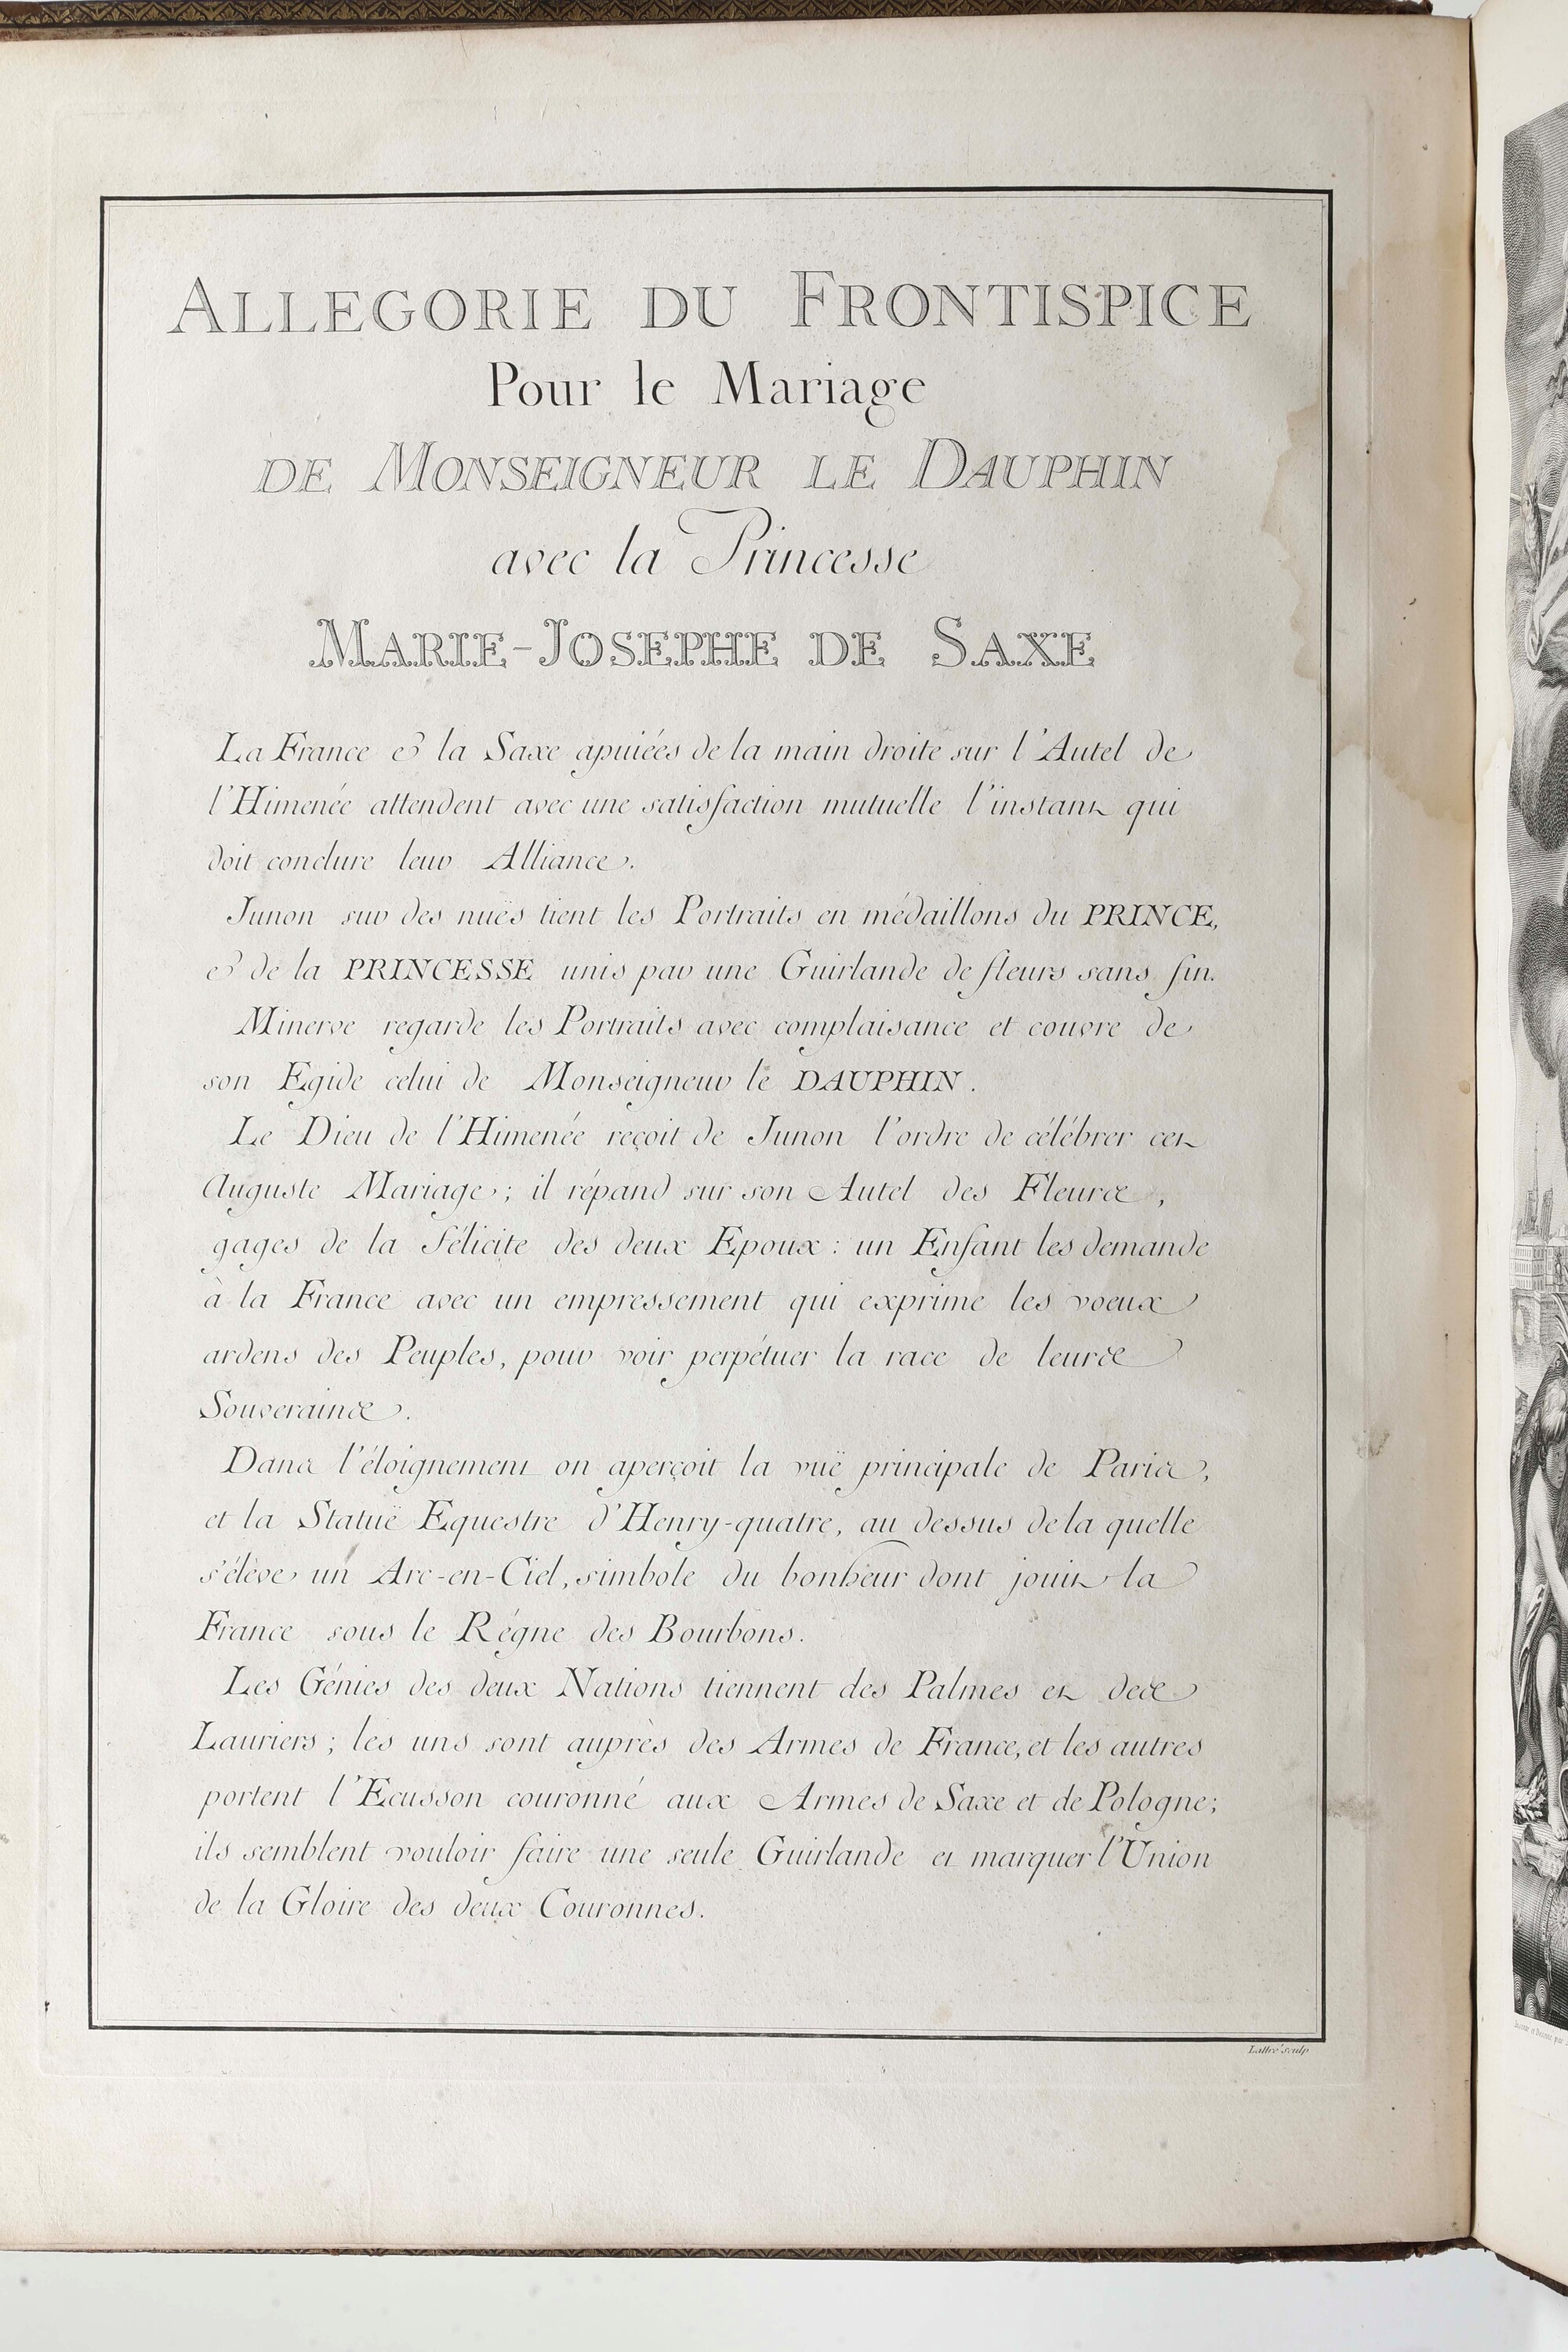 ALLEGORIE DU FRONTISPICE
Pour le Mariage
DE MONSEIGNEUR LE DAUPHIN
avec la Princesse
MARIE-JOSEPHE DE SAXE
La France & la Saxe apuiées de la main droite sur l'Autel de
l'Himenée attendent avec une satisfaction mutuelle l'instant qui
doit conclure leur Alliance.
Junon sur des nuës tient les Portraits en médaillons du PRINCE,
& de la PRINCESSE unis par une Guirlande de fleurs sans fin.
Minerve regarde les Portraits avec complaisance et couvre de
son Egide celui de Monseigneur le DAUPHIN.
Le Dieu de l'Himenée reçoit de Junon l'ordre de célébrer cet
Auguste Mariage; il répand sur son Autel des Fleurs,
gages de la félicite des deux Epoux: un Enfant les demande
à la France avec un empressement qui exprime les voeux
ardens des Peuples, pour voir perpétuer la race de leurs
Souverains.
Dans l'éloignement on aperçoit la vuë principale de Paris,
et la Statuë Equestre d'Henry-quatre, au dessus de la quelle
s'élève un Arc-en-Ciel, simbole du bonheur dont jouit la
France sous le Régne des Bourbons.
Les Génies des deux Nations tiennent des Palmes et des
Lauriers; les uns sont auprès des Armes de France, et les autres
portent l'Ecusson couronné aux Armes de Saxe et de Pologne;
ils semblent vouloir faire une seule Guirlande et marquer l'Union
de la Gloire des deux Couronnes.
Lattré sculp